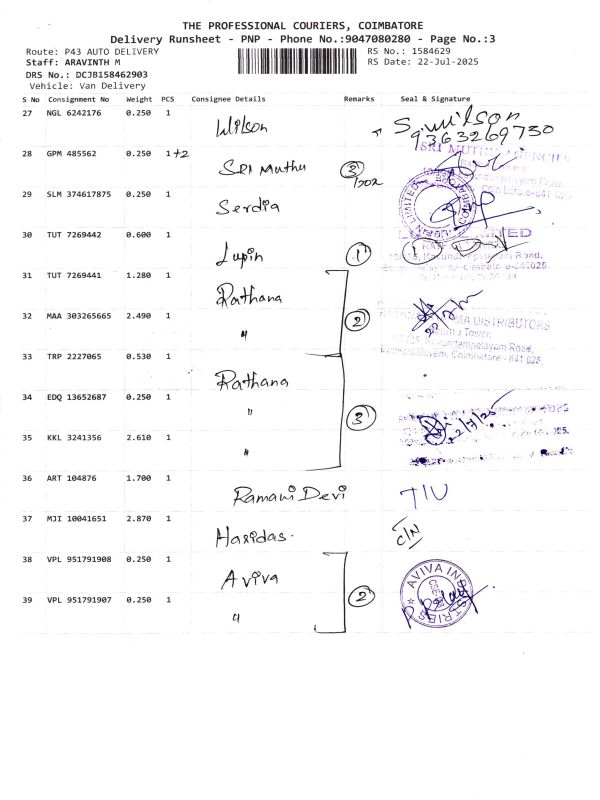 THE PROFESSIONAL COURIERS, COIMBATORE
Delivery Runsheet - PNP - Phone No.:9047080280 - Page No.:3
Route: P43 AUTO DELIVERY RS No.: 1584629
Staff: ARAVINTH M RS Date: 22-Jul-2025
DRS No.: DCJB158462903
Vehicle: Van Delivery
S No Consignment No Weight PCS Consignee Details Remarks Seal & Signature
27 NGL 6242176 0.250 1 Wilson S. wilson
9363269730
28 GPM 485562 0.250 1+2 Sri Muthu 3 SRI MUTHU
29 SLM 374617875 0.250 1 Serdia
30 TUT 7269442 0.600 1 Lupin 1
31 TUT 7269441 1.280 1 Rathana
32 MAA 303265665 2.490 1 " 2 DISTRIBUTORS
Tower,
Road,
Coimbatore - 641 025.
33 TRP 2227065 0.530 1 Rathana
34 EDQ 13652687 0.250 1 " 3 22/7/25
35 KKL 3241356 2.610 1 "
36 ART 104876 1.700 1 Ramani Devi TIU
37 MJI 10041651 2.870 1 Haridas. C/N
38 VPL 951791908 0.250 1 Aviva
39 VPL 951791907 0.250 1 " 2 AVIVA INDUSTRIES